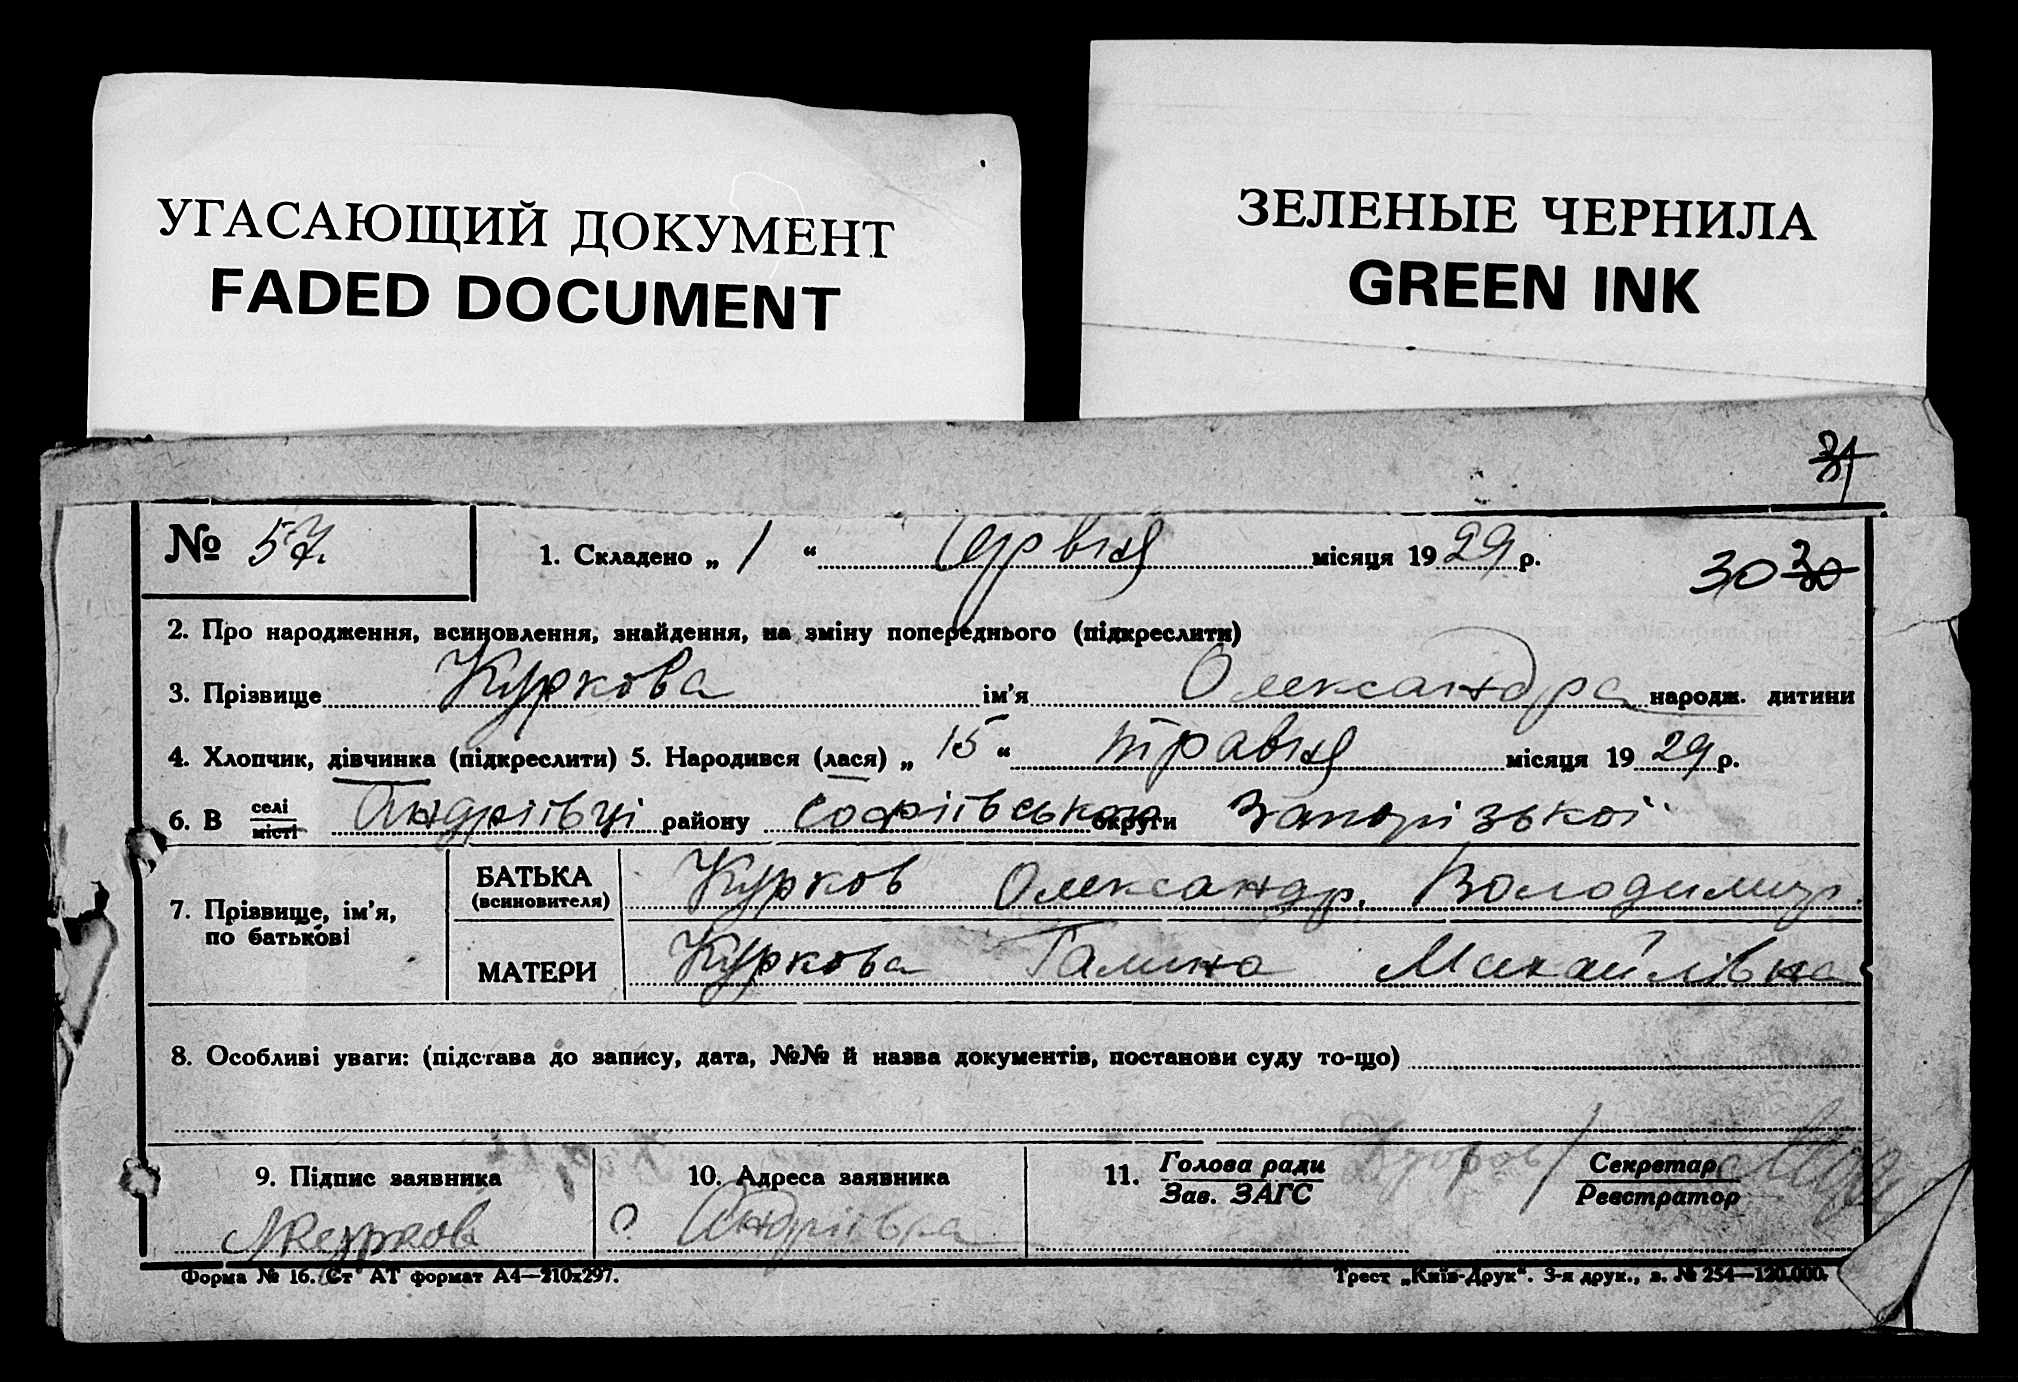 УГАСАЮЩИЙ ДОКУМЕНТ
FADED DOCUMENT
ЗЕЛЕНЫЕ ЧЕРНИЛА
GREEN INK
31
№ 57.
1. Складено „ 1 “ Червня місяця 19 29 р.
30 30
2. Про народження, всиновлення, знайдення, на зміну попереднього (підкреслити)
3. Прізвище Куркова ім'я Олександра народж. дитини
4. Хлопчик, дівчинка (підкреслити) 5. Народився (лася) „ 15 “ травня місяця 19 29 р.
6. В селі місті Андріївці району Софіївського округи Запорізької
7. Прізвище, ім'я, по батькові
БАТЬКА (всиновителя) Курков Олександр. Володимир.
МАТЕРИ Куркова Галина Михайлівна
8. Особливі уваги: (підстава до запису, дата, №№ й назва документів, постанови суду то-що)
9. Підпис заявника
Курков
10. Адреса заявника
с. Андріівка
11. Голова ради
Зав. ЗАГС
Секретар
Реєстратор
Форма № 16. Ст АТ формат А4—210x297.
Трест „Київ-Друк“. 3-я друк., з. № 254—120.000.